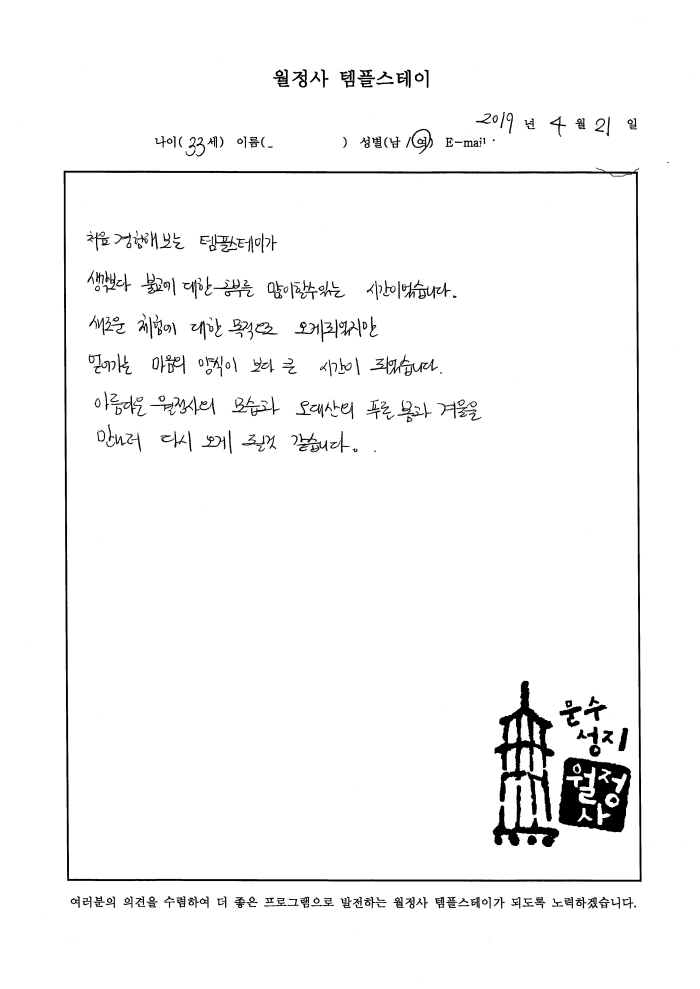 월정사 템플스테이
2019 년 4 월 21 일
나이( 33 세) 이름( ) 성별(남 / 여) E-mail
처음 경험해보는 템플스테이가
생각보다 불교에 대한 공부를 많이할수있는 시간이었습니다.
새로운 체험에 대한 목적으로 오게되었지만
얻어가는 마음의 양식이 보다 큰 시간이 되었습니다.
아름다운 월정사의 모습과 오대산의 푸른 봄과 겨울을
만나러 다시 오게 될것 같습니다.
문수
성지
월정
사
여러분의 의견을 수렴하여 더 좋은 프로그램으로 발전하는 월정사 템플스테이가 되도록 노력하겠습니다.